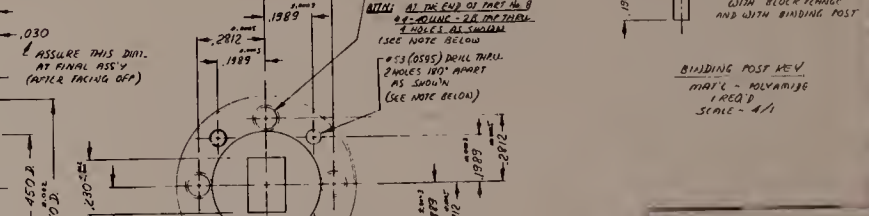 .030
ASSURE THIS DIM.
AT FINAL ASS'Y
(AFTER FACING OFF)
.1989
.2812
.1989
ATTN: AT THE END OF PART No 8
#4-40UNC-2B TAP THRU
4 HOLES AS SHOWN
(SEE NOTE BELOW
#53 (0595) DRILL THRU
2 HOLES 180° APART
AS SHOWN
(SEE NOTE BELOW)
WITH BLOCK FLANGE
AND WITH BINDING POST
BINDING POST KEY
MAT'L - POLYAMIDE
1 REQ'D
SCALE - 4/1
.450 D.
.230
.1989
.2812